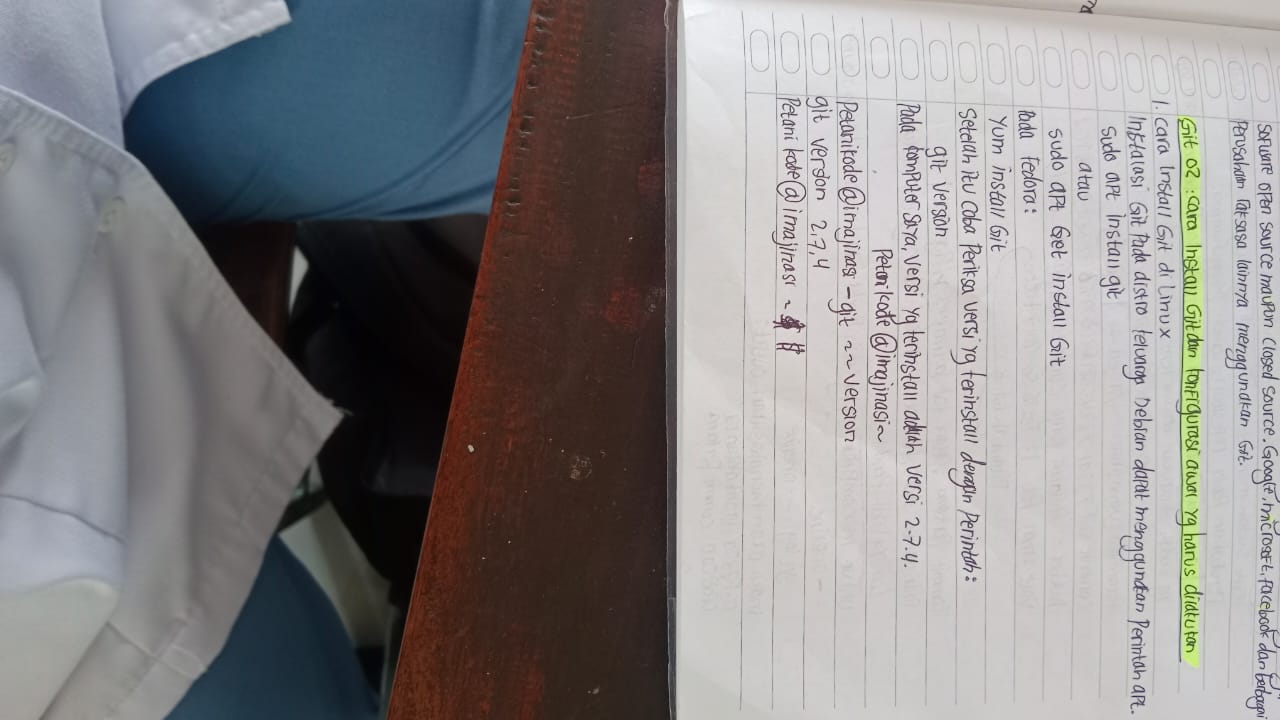 software open source maupun closed source. Google, microsoft, facebook dan berbagai
Perusahaan raksasa lainnya menggunakan Git.
Git 02 : cara Install Git dan konfigurasi awal yg harus dilakukan
1. Cara Install Git di Linux
Instalasi Git Pada distro keluarga Debian dapat menggunakan Perintah apt.
sudo apt install git
atau
sudo apt Get install Git
Pada Fedora:
Yum install Git
Setelah itu Coba Periksa versi yg terinstall dengan Perintah:
git version
Pada komputer saya, versi yg terinstall adalah versi 2.7.4.
Petanikode@imajinasi~
Petanikode@imajinasi - git ~~ version
git version 2.7,4
Petani kode@imajinasi ~ #